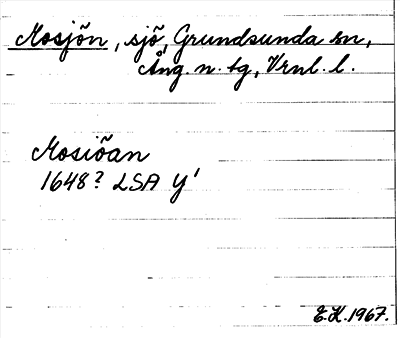 Mosjön, sjö, Grundsunda sn,
Ång. n. tg, Vrnl. l.
Mosiöan
1648? LSA Y'
E.K. 1967.